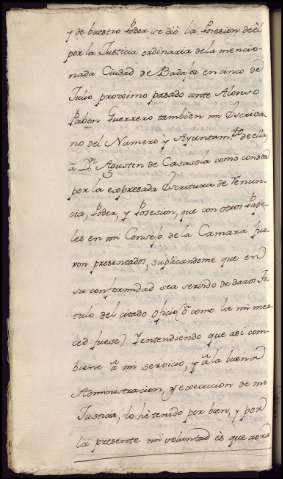 y de buestro Poder se dió la Posesion de el
por la Justicia ordinaria de la mencio-
nada Ciudad de Badajoz en cinco de
Julio proximo pasado ante Alonso
Pabon Guerrero tambien mi Escriba-
no del Numero y Ayuntam.to de ella
à D.n Agustin de como consta
por la expresada Escritura de Renun-
cia, Poder, y Posesion, que con otros Pape-
les en mi Consejo de la Camara fue-
ron presentados, suplicandome que en
su conformidad sea servido de daros Ti-
tulo del citado oficio (ò como la mi mer-
ced fuese) Y entendiendo que asi com-
biene à mi servicio, y à la buena
Administracion, y execucion de mi
Justicia, lo hè tenido por bien, y por
la presente mi voluntad es que aora